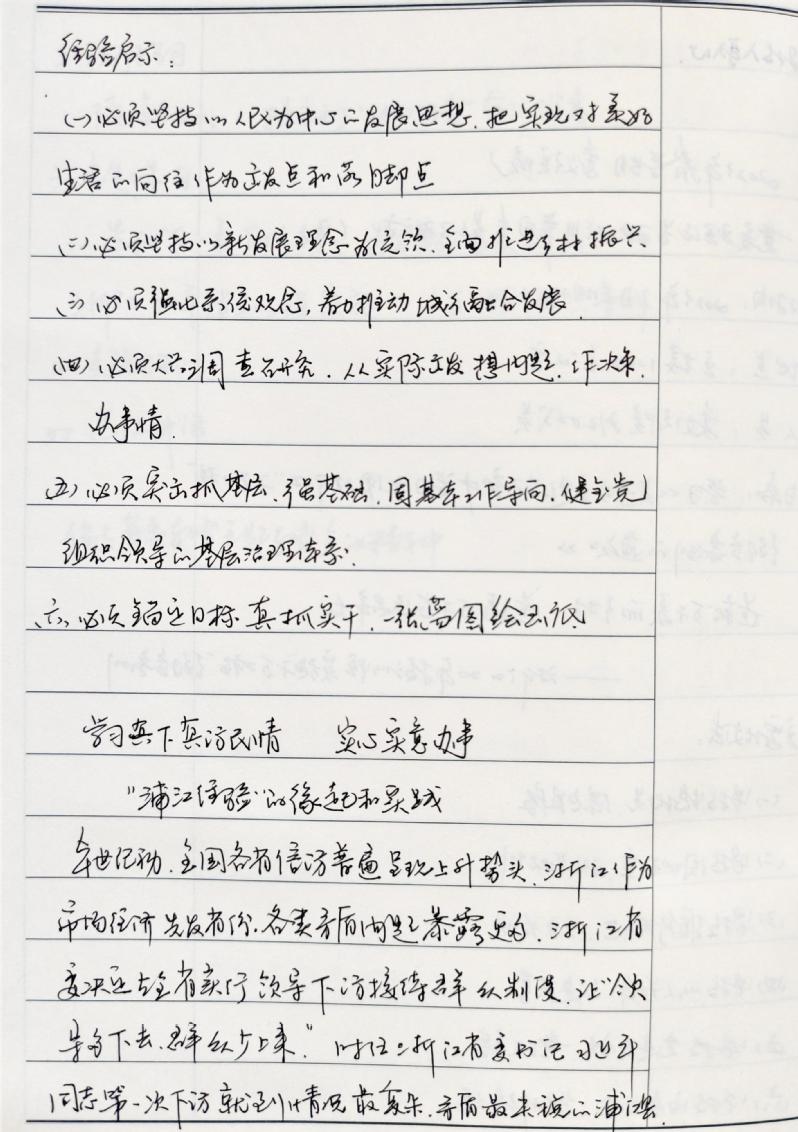 经验启示：
(一)必须坚持以人民为中心的发展思想，把实现对美好
生活的向往作为出发点和落脚点
(二)必须坚持以新发展理念为统领，全面推进乡村振兴
(三)必须强化系统观念，着力推动城乡融合发展
(四)必须大兴调查研究，从实际出发想问题、作决策、
办事情.
(五)必须突出抓基层、强基础、固基本工作导向，健全党
组织领导的基层治理体系.
(六)必须锚定目标真抓实干，一张蓝图绘到底
学习真下真访民情 实心实意办事
“浦江经验”的缘起和实践
本世纪初，全国各省信访普遍呈现上升势头，浙江作为
市场经济先发省份，各类矛盾问题暴露更多，浙江省
委决定在全省实行领导下访接待群众制度，让“领
导多下去，群众少上来。”时任浙江省委书记习近平
同志第一次下访就到情况最复杂、矛盾最突出的浦江县